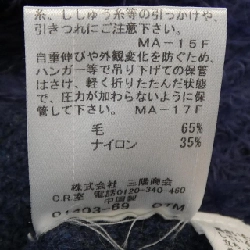 糸、ししゅう糸等の引っかけや、
引きつれにご注意下さい。
MA-15F
自重伸びや外観変化を防ぐため、
ハンガー等で吊り下げての保管
はさけ、軽く折りたたんだ状態
で、圧力が加わらないように保
管して下さい。 MA-17F
毛 65%
ナイロン 35%
株式会社 三陽商会
C.R.室 電話0120-340-460
中国製